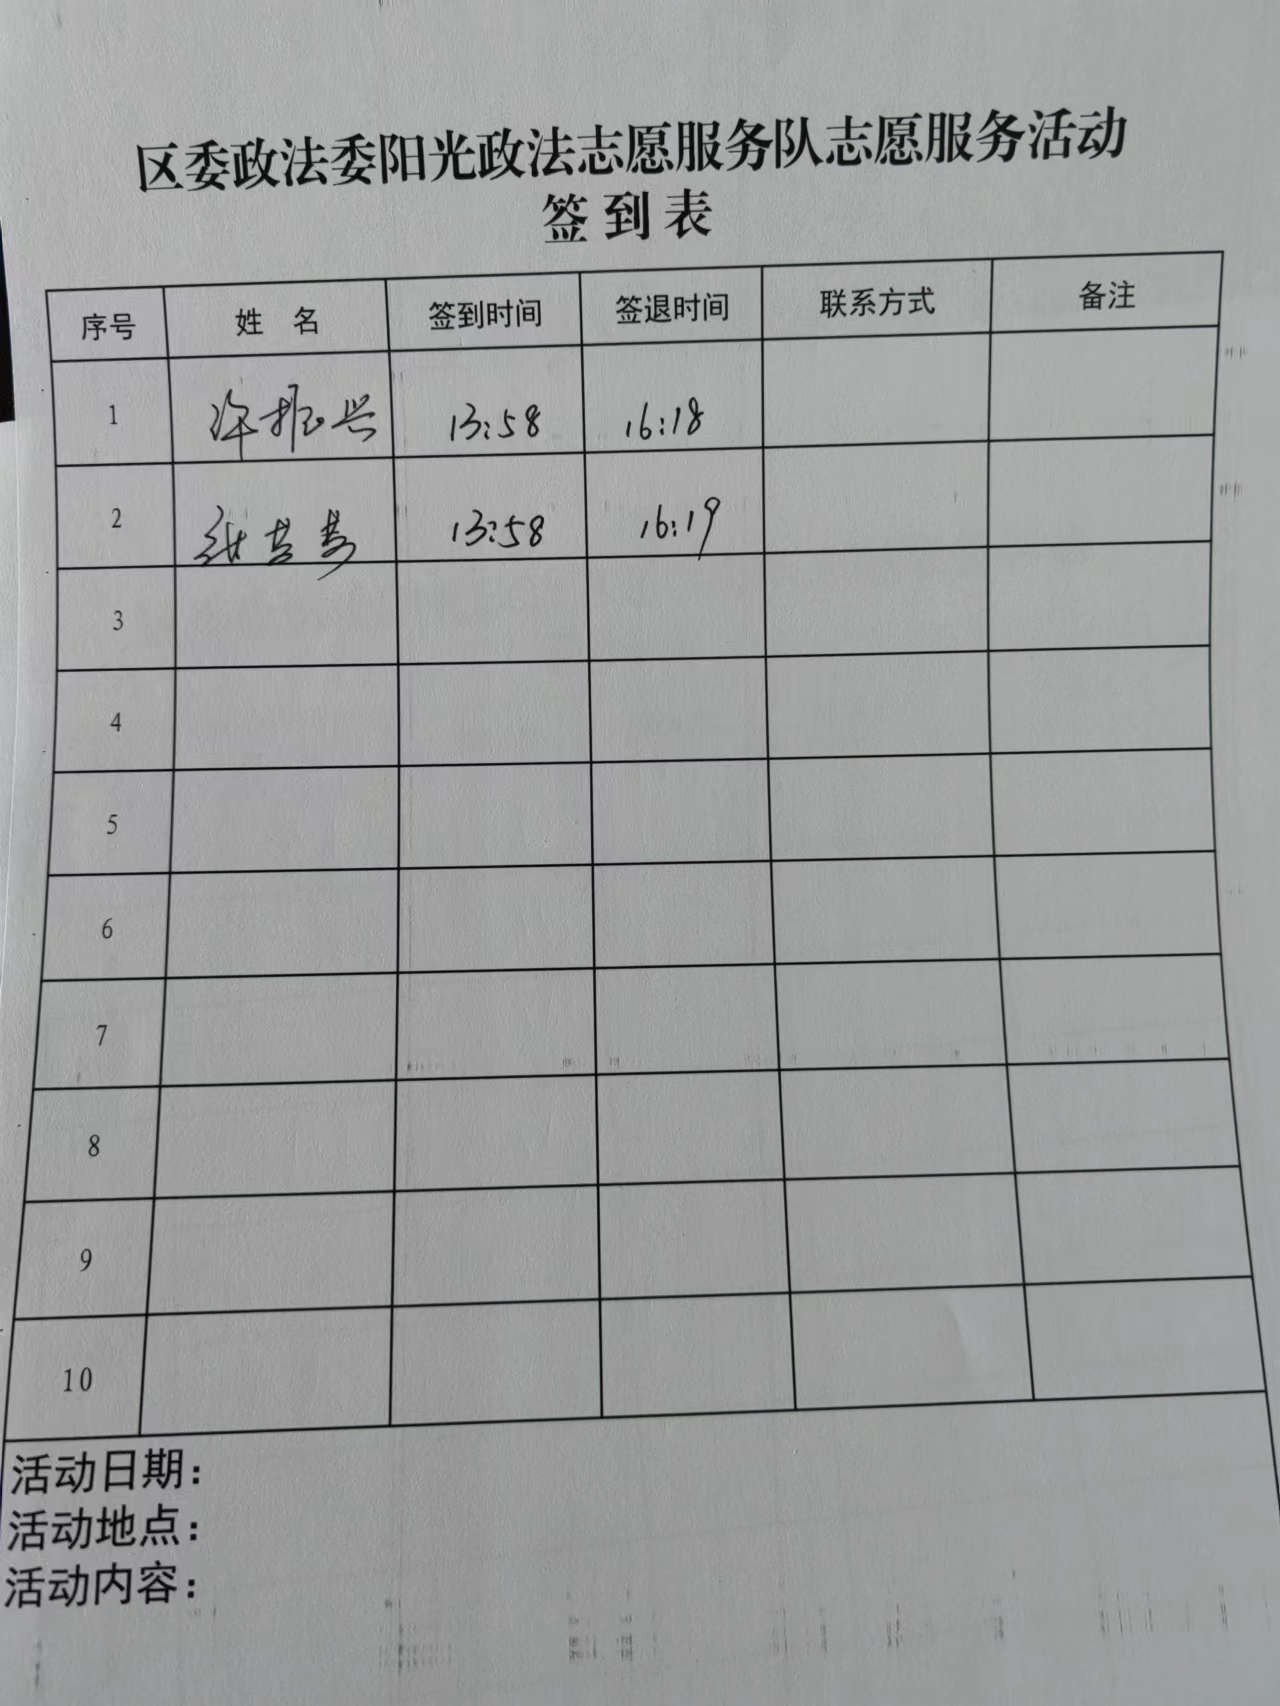 区委政法委阳光政法志愿服务队志愿服务活动
签到表
序号 姓名 签到时间 签退时间 联系方式 备注
1 许振兴 13:58 16:18
2 13:58 16:19
3
4
5
6
7
8
9
10
活动日期：
活动地点：
活动内容：